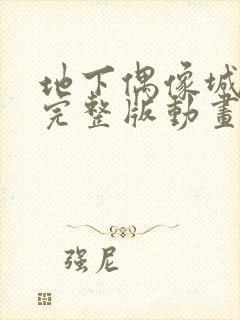 地下偶像城
完整版動畫
强尼